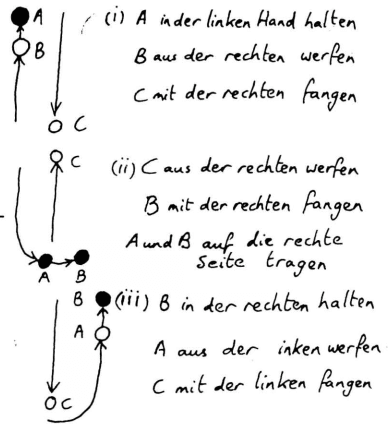 A
(i) A in der linken Hand halten
B
B aus der rechten werfen
C mit der rechten fangen
C
C
(ii) C aus der rechten werfen
B mit der rechten fangen
A und B auf die rechte
Seite tragen
A B
B
(iii) B in der rechten halten
A
A aus der inken werfen
C mit der linken fangen
C